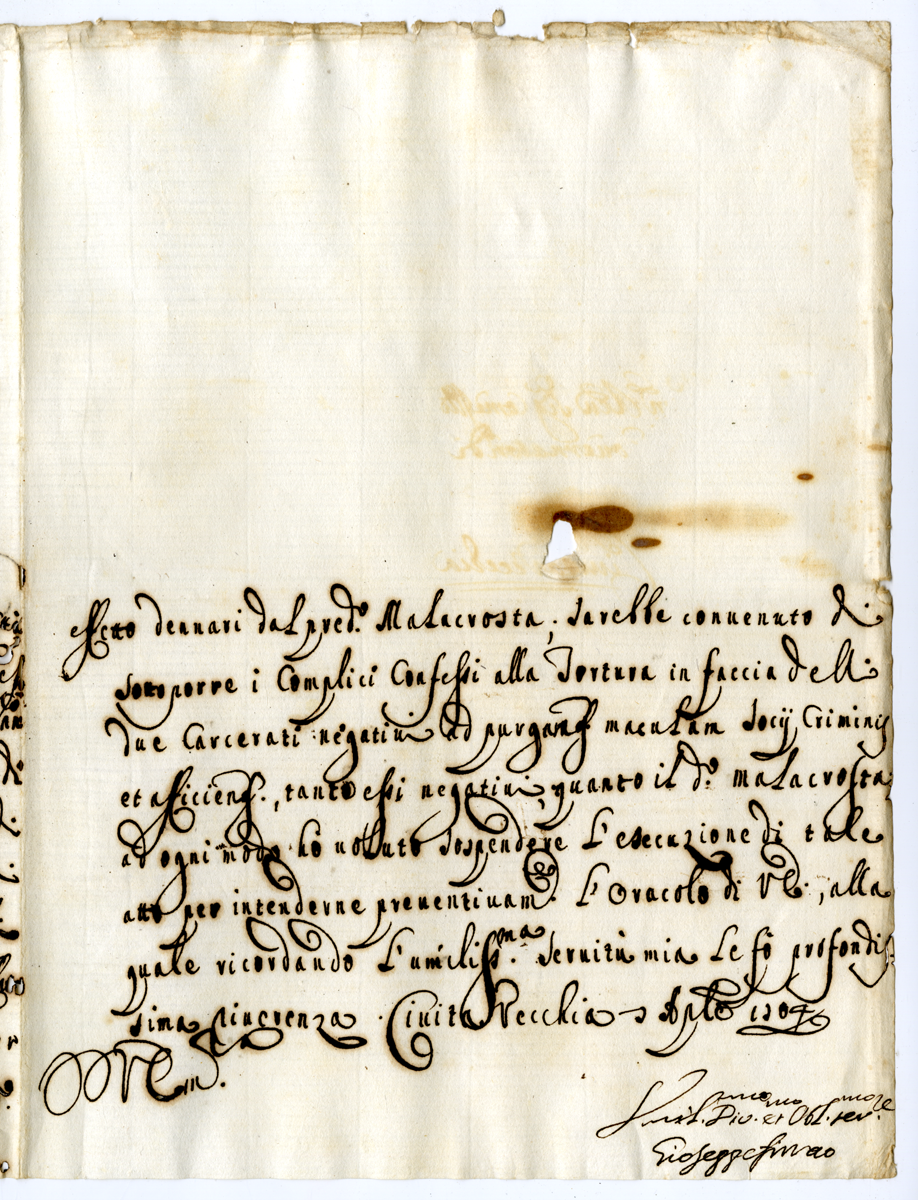 effetto denari dal pred.º Malacrosta, sarebbe convenuto di
sottoporre i Complici Confessi alla Tortura in faccia delli
due Carcerati negativi ad purgand maculam Socij Criminis
et afficiend., tanto essi negativi, quanto il d.º Malacrosta
ad ogni modo hò voluto sospendere l'esecuzione di tale
atto per intenderne preventivam.te L'Oracolo di VE., alla
quale ricordando L'umiliss.ma servitù mia Le fò profondis
sima riverenza. Civita Vecchia 5 Aple
VE
Div. et Obl. ser.re
Gioseppe